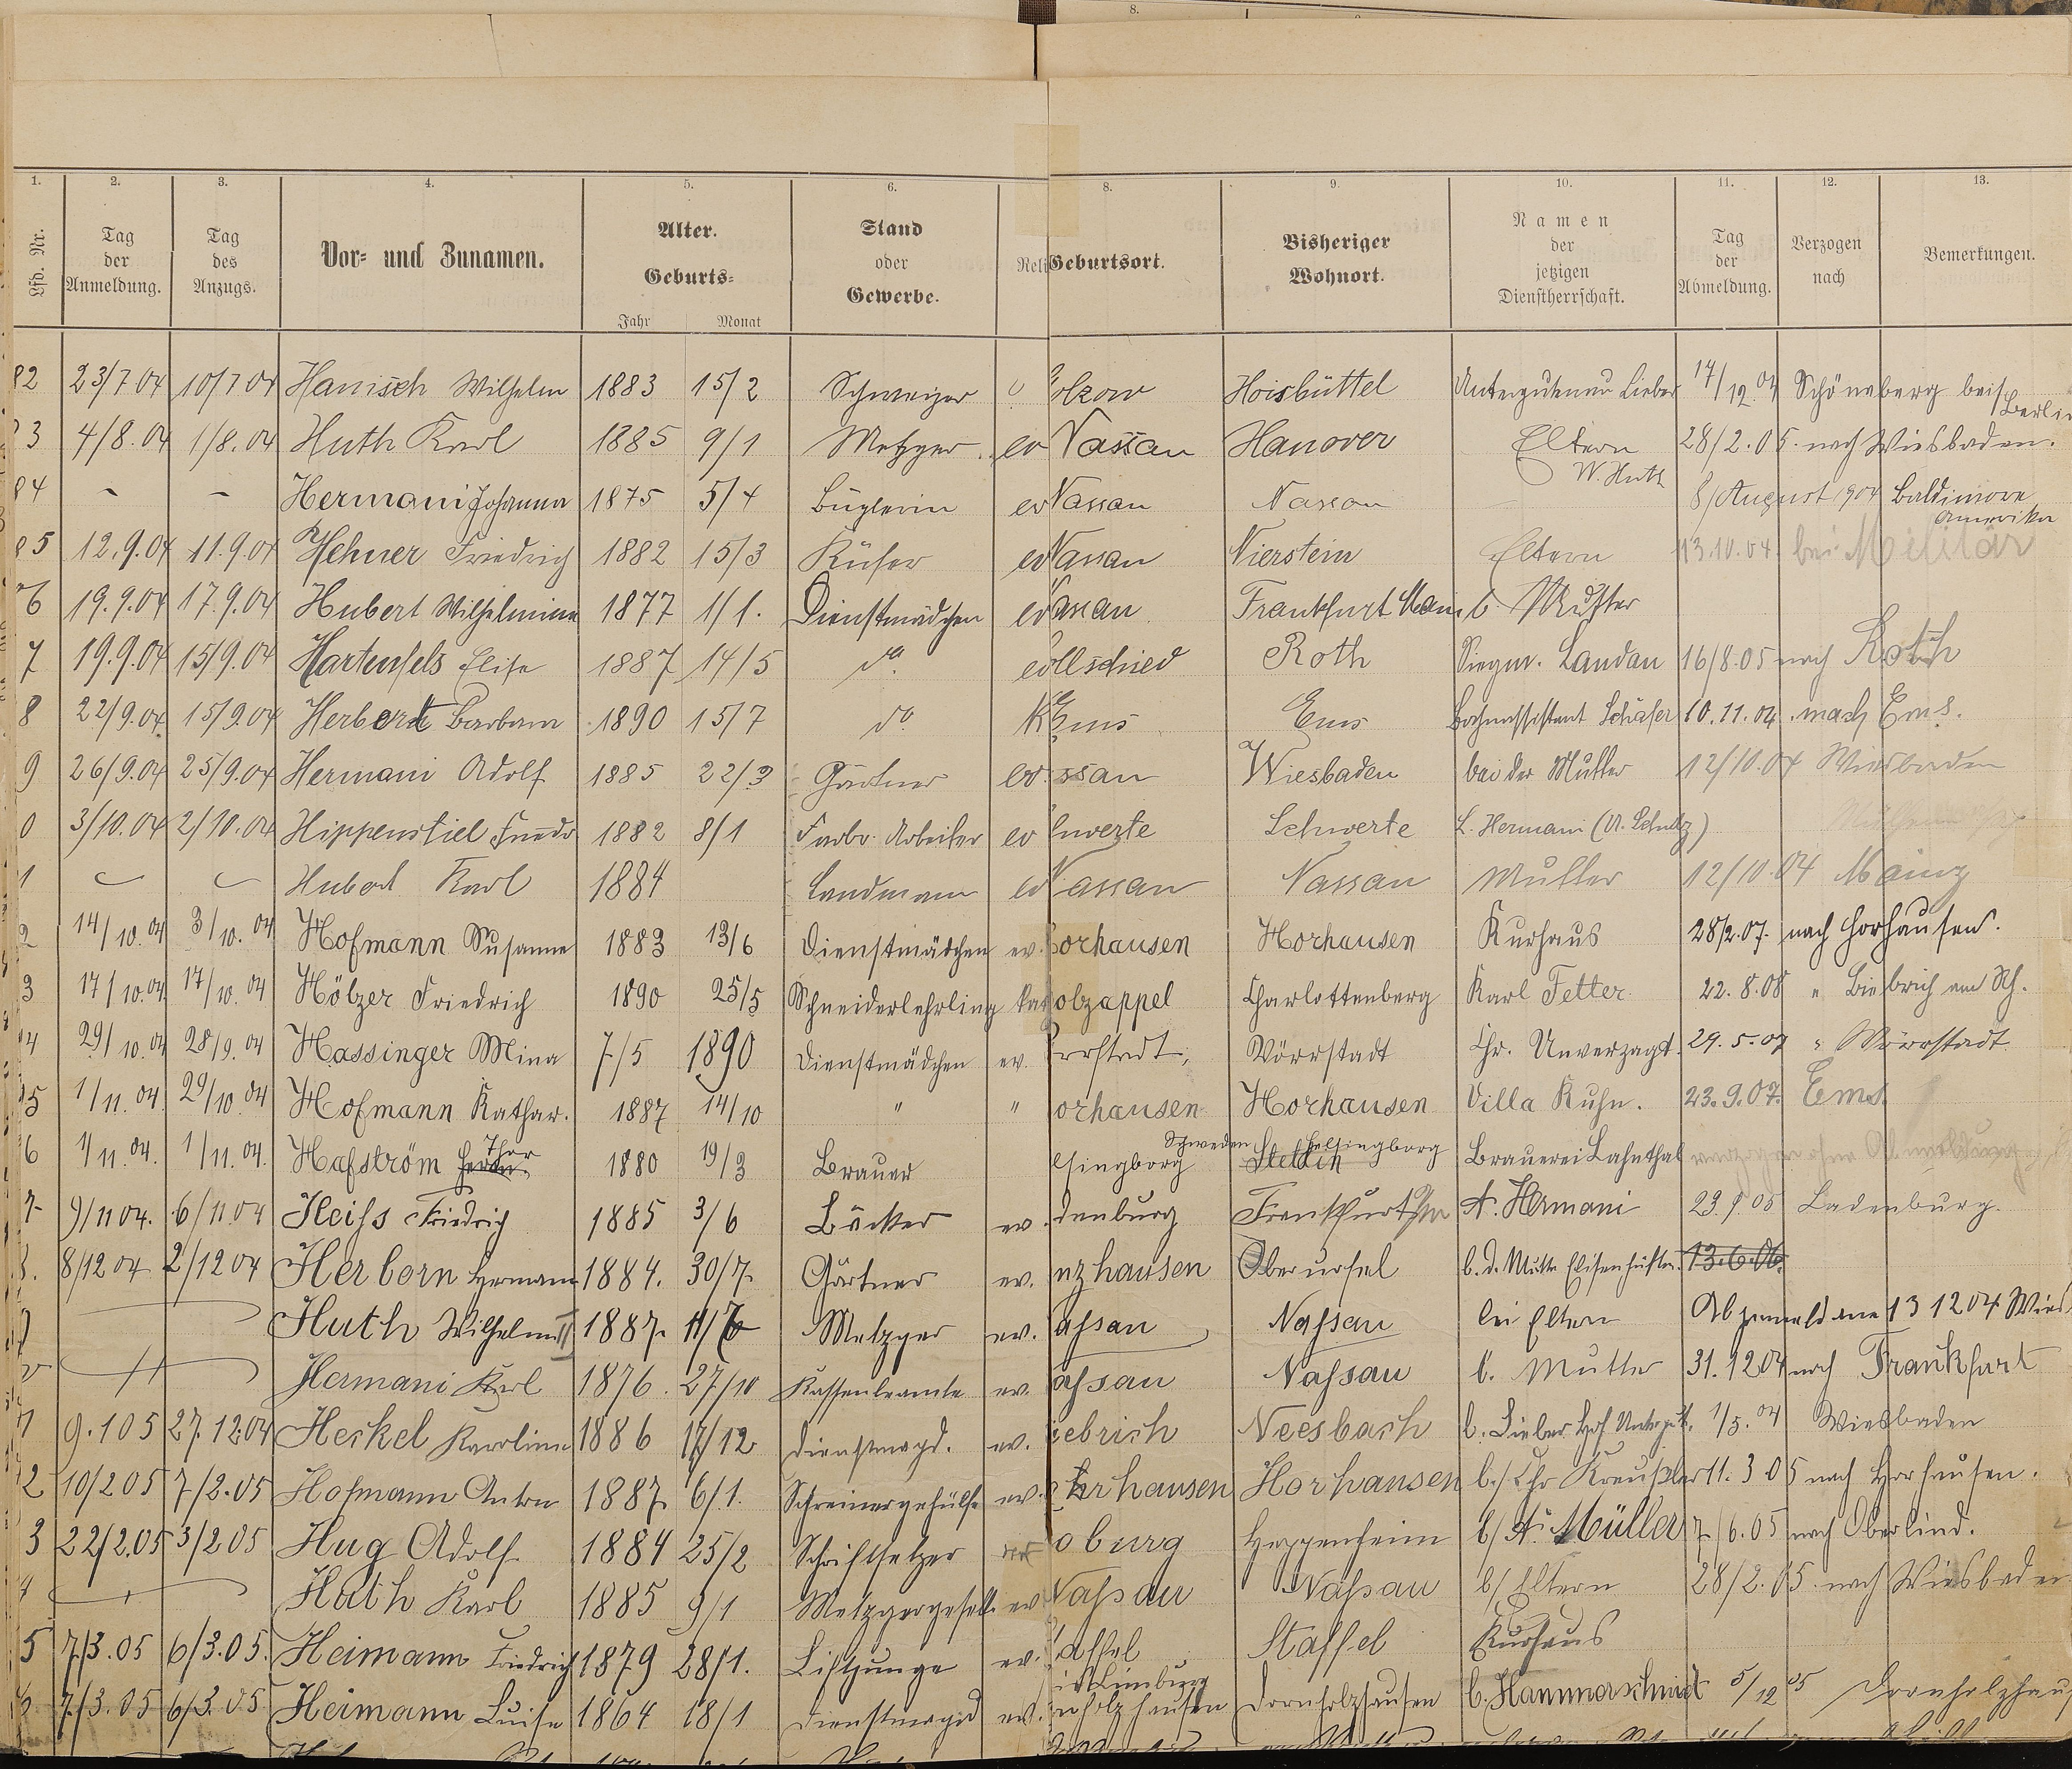 8.
1. 2. 3. 4. 5. 6. 8. 9. 10. 11. 12. 13.
Lfd. Nr. Tag der Anmeldung. Tag des Anzugs. Vor- und Zunamen. Alter. Geburts- Jahr Monat Stand oder Gewerbe. Reli Geburtsort. Bisheriger Wohnort. Namen der jetzigen Dienstherrschaft. Tag der Abmeldung. Verzogen nach Bemerkungen.
82 23/7 04 10/7 04 Hanisch Wilhelm 1883 15/2 Schweizer olzow Hoisbüttel Lieber 17/12.04 Schöneberg bei Berlin
83 4/8.04 1/8.04 Huth Karl 1885 9/1 Metzger ev Nassau Hanover Eltern W. Huth 28/2.05. nach Wiesbaden.
84 - - Hermani Johanna 1875 5/4 Büglerin ev Nassau Nassau 8/August 1904 Baldimore Amerika
85 12.9.04 11.9.04 Hehner Friedrich 1882 15/3 Küfer ev Nassau Nierstein Eltern 13.10.04. bei Militär
86 19.9.04 17.9.04 Hubert Wilhelmine 1877 1/1. Dienstmädchen ev assau Frankfurt Main b. Mutter
7 19.9.04 15/9.04 Hartenfels Elise 1887 14/5 do. ev ollschied Roth Siegm. Landau 16/8.05 nach Roth
8 22/9.04 15/9.04 Herbert Barbara 1890 15/7 do. K Ems Ems Bahnassistent Schäfer 10.11.04. nach Ems.
9 26/9.04 25/9.04 Hermani Adolf 1885 22/3 Gärtner ev. ssau Wiesbaden bei der Mutter 12/10.04 Wiesbaden
0 3/10.04 2/10.04 Hippenstiel Friedr 1882 8/1 Fabr. Arbeiter ev hwerte Schwerte L. Hermani (A. Schultz)
1 Hubert Karl 1884 Landmann ev Nassau Nassau Mutter 12/10.04 Mainz
2 14/10.04 3/10.04 Hofmann Susanne 1883 13/6 Dienstmädchen ev. Horhausen Horhausen Kurhaus 28/2.07. nach Horhausen.
3 17/10.04 17/10.04 Hölzer Friedrich 1890 25/5 Schneiderlehrling kat olzappel Charlottenberg Karl Fetter 22.8.08 " Biebrich am Rh.
4 29/10.04 28/9.04 Hassinger Mina 7/5 1890 Dienstmädchen ev. rrstadt, Wörrstadt Chr. Unverzagt. 29.5.07 " Wörrstadt
95 1/11.04. 29/10.04 Hofmann Kathar. 1887 14/10 " " orhausen Horhausen Villa Kuhn. 23.9.07. Ems.
6 1/11.04. 1/11.04. Hafström Thor 1880 19/3 Brauer elsingborg Schweden Stettin Helsingborg Brauerei Lahnthal
7 9/11 04. 6/11.04 Heiss Friedrich 1885 3/6 Bäcker ev. denburg Frankfurt a/m A. Hermani 23.9.05 Ladenburg.
8. 8/12 04 2/12 04 Herborn Hermann 1884. 30/7. Gärtner ev. nzhausen Oberursel b. d. Mutter 13.6.06.
9 Huth Wilhelm II 1887. 11/7 Metzger ev. assau Nassau bei Eltern 13 12 04 Wies
Hermani Karl 1876. 27/10 Kassenbeamte ev. assau Nassau b. Mutter 31.12.04 nach Frankfurt
1 9.1 05 27.12.04 Heckel Karoline 1886 17/12 Dienstmagd. ev. iebrich Neesbach b. Lieber Hof Untergut. 1/5.04 Wiesbaden
2 10/2 05 7/2.05 Hofmann Anton 1887. 6/1. Schreinergehülfe ev. orhausen Horhausen b/ Chr Kreußler 11.3 05 nach Horhausen.
3 22/2.05 3/2 05 Hug Adolf. 1884 25/2 Schriftsetzer oburg Heppenheim b/ A. Müller 7/6.05 nach Oberlind.
4 Huth Karl 1885 9/1 Metzgergeselle ev Nassau Nassau b/ Eltern 28/2.05. nach Wiesbaden
5 7/3.05 6/3.05. Heimann Friedrich 1879 28/1. Liftjunge ev. taffel Limburg Staffel Kurhaus
6 7/3.05 6/3.05 Heimann Luise 1864 18/1 Dienstmagd ev. nholzhausen Dornholzhausen b. Hammerschmidt 5/12 05 Dornholzhau